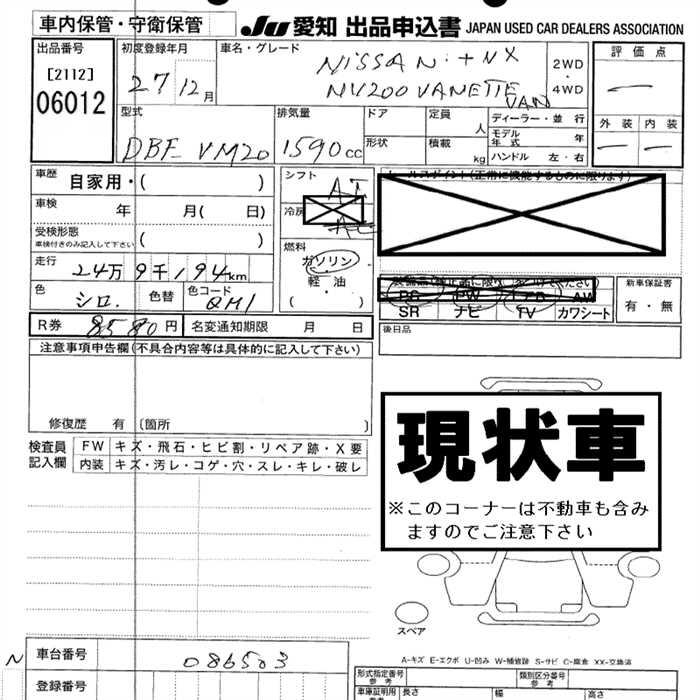 車内保管・守衛保管
JU 愛知 出品申込書 JAPAN USED CAR DEALERS ASSOCIATION
出品番号
[2112]
06012
初度登録年月
27 12月
車名・グレード
NISSAN
NV200 VANETTE
VAN
2WD
・
4WD
評価点
外装 内装
型式
DBF-VM20
排気量
1590cc
ドア
形状
定員
人
積載
kg
ディーラー・並行
モデル年式 年
ハンドル 左・右
車歴
自家用・( )
車検 年 月( 日)
受検形態
車検付きのみ記入して下さい
( )
走行
24万9千194km
色
シロ.
色替
色コード
QM1
シフト
AT
冷房
AC
燃料
ガソリン
軽油
( ・ )
セールスポイント(正常に機能するものに限ります)
PS PW エアB AW
SR ナビ TV カワシート
新車保証書
有・無
後日品
R券 8580円
名変通知期限 月 日
注意事項申告欄(不具合内容等は具体的に記入して下さい)
修復歴 有〔箇所 〕
検査員記入欄
FW キズ・飛石・ヒビ割・リペア跡・X要
内装 キズ・汚レ・コゲ・穴・スレ・キレ・破レ
現状車
※このコーナーは不動車も含み
ますのでご注意下さい
スペア
A-キズ E-エクボ U-凹み W-補修跡 S-サビ C-腐食 XX-交換済
N
車台番号
086503
登録番号
形式指定番号
参考
類別区分番号
参考
車庫証明用
参考
長さ
幅
高さ